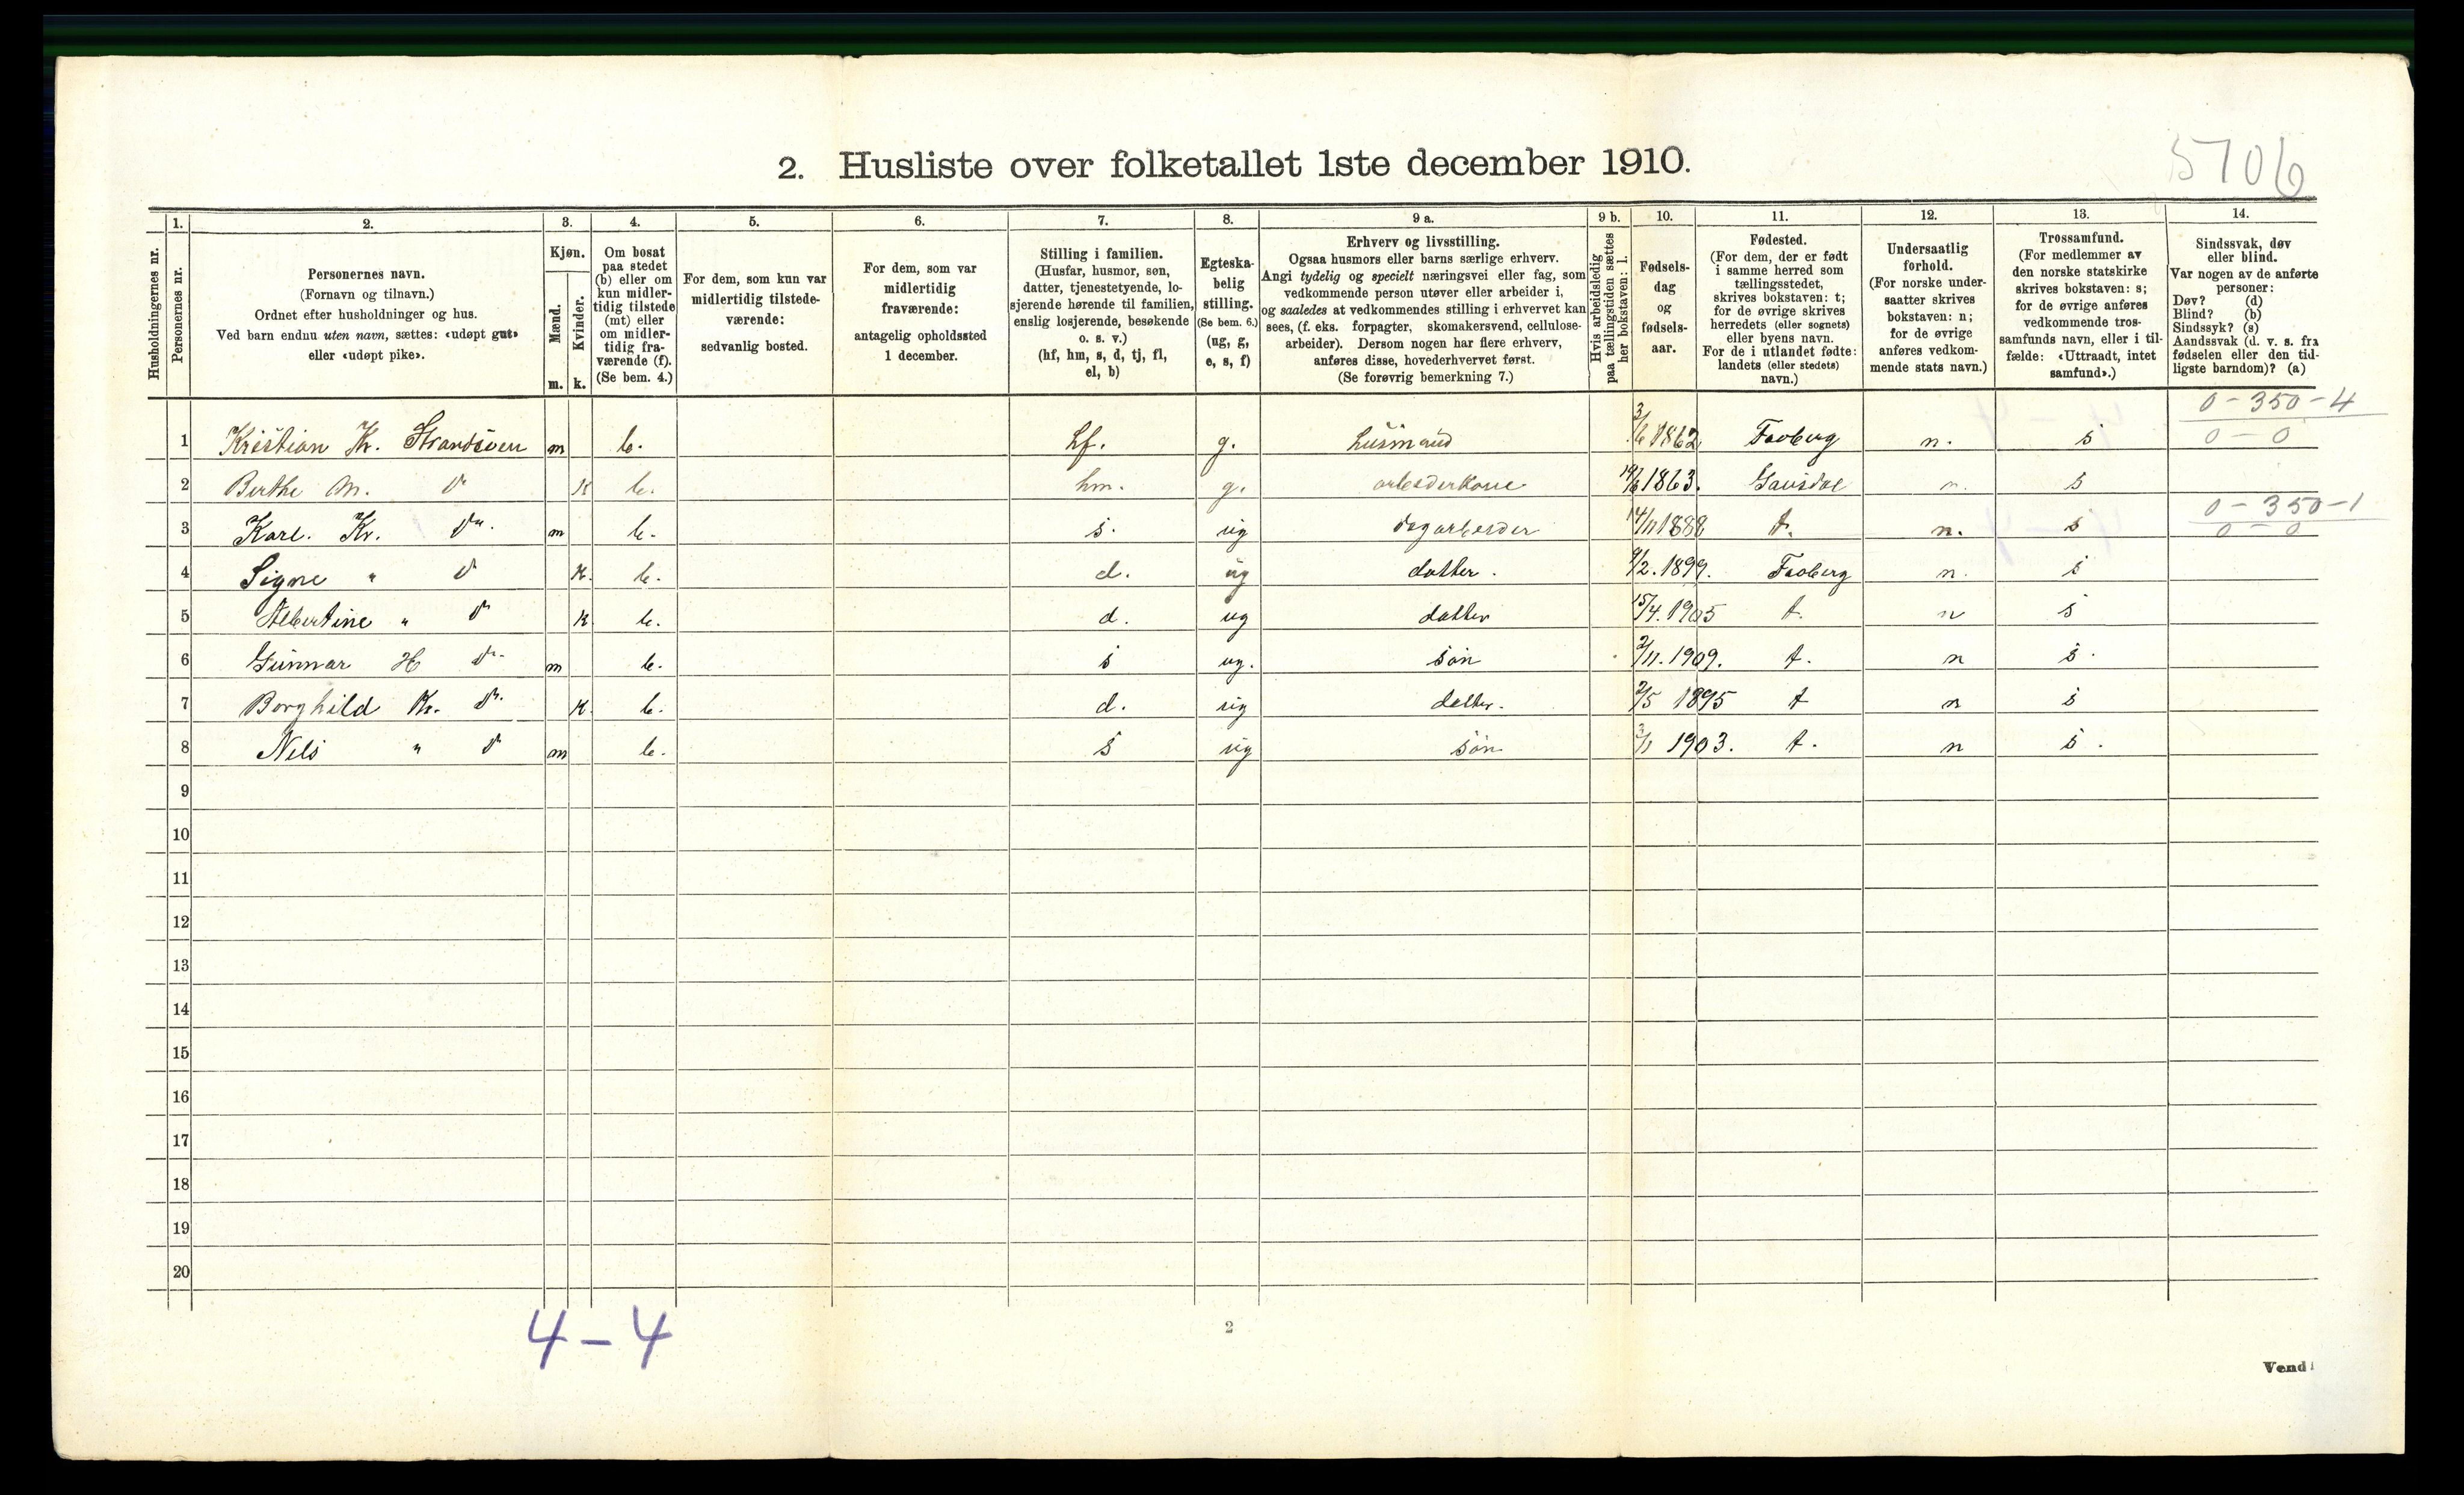 2. Husliste over folketallet 1ste december 1910.
5706
Husholdningernes nr.
1.
Personernes nr.
2.
Personernes navn.
(Fornavn og tilnavn.)
Ordnet efter husholdninger og hus.
Ved barn endnu uten navn, sættes: «udøpt gut»
eller «udøpt pike».
3.
Kjøn.
Mænd.
Kvinder.
m. k.
4.
Om bosat
paa stedet
(b) eller om
kun midler-
tidig tilstede
(mt) eller
om midler-
tidig fra-
værende (f).
(Se bem. 4.)
5.
For dem, som kun var
midlertidig tilstede-
værende:
sedvanlig bosted.
6.
For dem, som var
midlertidig
fraværende:
antagelig opholdssted
1 december.
7.
Stilling i familien.
(Husfar, husmor, søn,
datter, tjenestetyende, lo-
sjerende hørende til familien,
enslig losjerende, besøkende
o. s. v.)
(hf, hm, s, d, tj, fl,
el, b)
8.
Egteska-
belig
stilling.
(Se bem. 6.)
(ug, g,
e, s, f)
9 a.
Erhverv og livsstilling.
Ogsaa husmors eller barns særlige erhverv.
Angi tydelig og specielt næringsvei eller fag, som
vedkommende person utøver eller arbeider i,
og saaledes at vedkommendes stilling i erhvervet kan
sees, (f. eks. forpagter, skomakersvend, cellulose-
arbeider). Dersom nogen har flere erhverv,
anføres disse, hovederhvervet først.
(Se forøvrig bemerkning 7.)
9 b.
Hvis arbeidsledig
paa tællingstiden sættes
her bokstaven: l.
10.
Fødsels-
dag
og
fødsels-
aar.
11.
Fødested.
(For dem, der er født
i samme herred som
tællingsstedet,
skrives bokstaven: t;
for de øvrige skrives
herredets (eller sognets)
eller byens navn.
For de i utlandet fødte:
landets (eller stedets)
navn.)
12.
Undersaatlig
forhold.
(For norske under-
saatter skrives
bokstaven: n;
for de øvrige
anføres vedkom-
mende stats navn.)
13.
Trossamfund.
(For medlemmer av
den norske statskirke
skrives bokstaven: s;
for de øvrige anføres
vedkommende tros-
samfunds navn, eller i til-
fælde: «Uttraadt, intet
samfund».)
14.
Sindssvak, døv
eller blind.
Var nogen av de anførte
personer:
Døv? (d)
Blind? (b)
Sindssyk? (s)
Aandssvak (d. v. s. fra
fødselen eller den tid-
ligste barndom)? (a)
0 - 350 - 4
1 Kristian Kr. Strandsven m b. hf. g. husmand 3/6 1862 Faaberg n. s 0 - 0
2 Berthe M. do k b. hm. g. arbeiderkone 19/6 1863. Gausdal n. s
0 - 350 - 1
3 Karl. Kr. do. m b. s. ug dagarbeider 14/11 1888 t. n. s 0 - 0
4 Signe " do k. b. d. ug datter. 9/2. 1899. Faaberg n. s
5 Albertine " do k b. d. ug datter 15/4. 1905 t. n s
6 Gunnar H do. m b. s ug. søn 2/11. 1909. t. n s.
7 Borghild Kr. do. k. b. d. ug datter. 2/5 1895 t n s
8 Nils " do m b. s ug søn 3/1 1903. t. n s.
9
10
11
12
13
14
15
16
17
18
19
20
4 - 4
2
Vend!